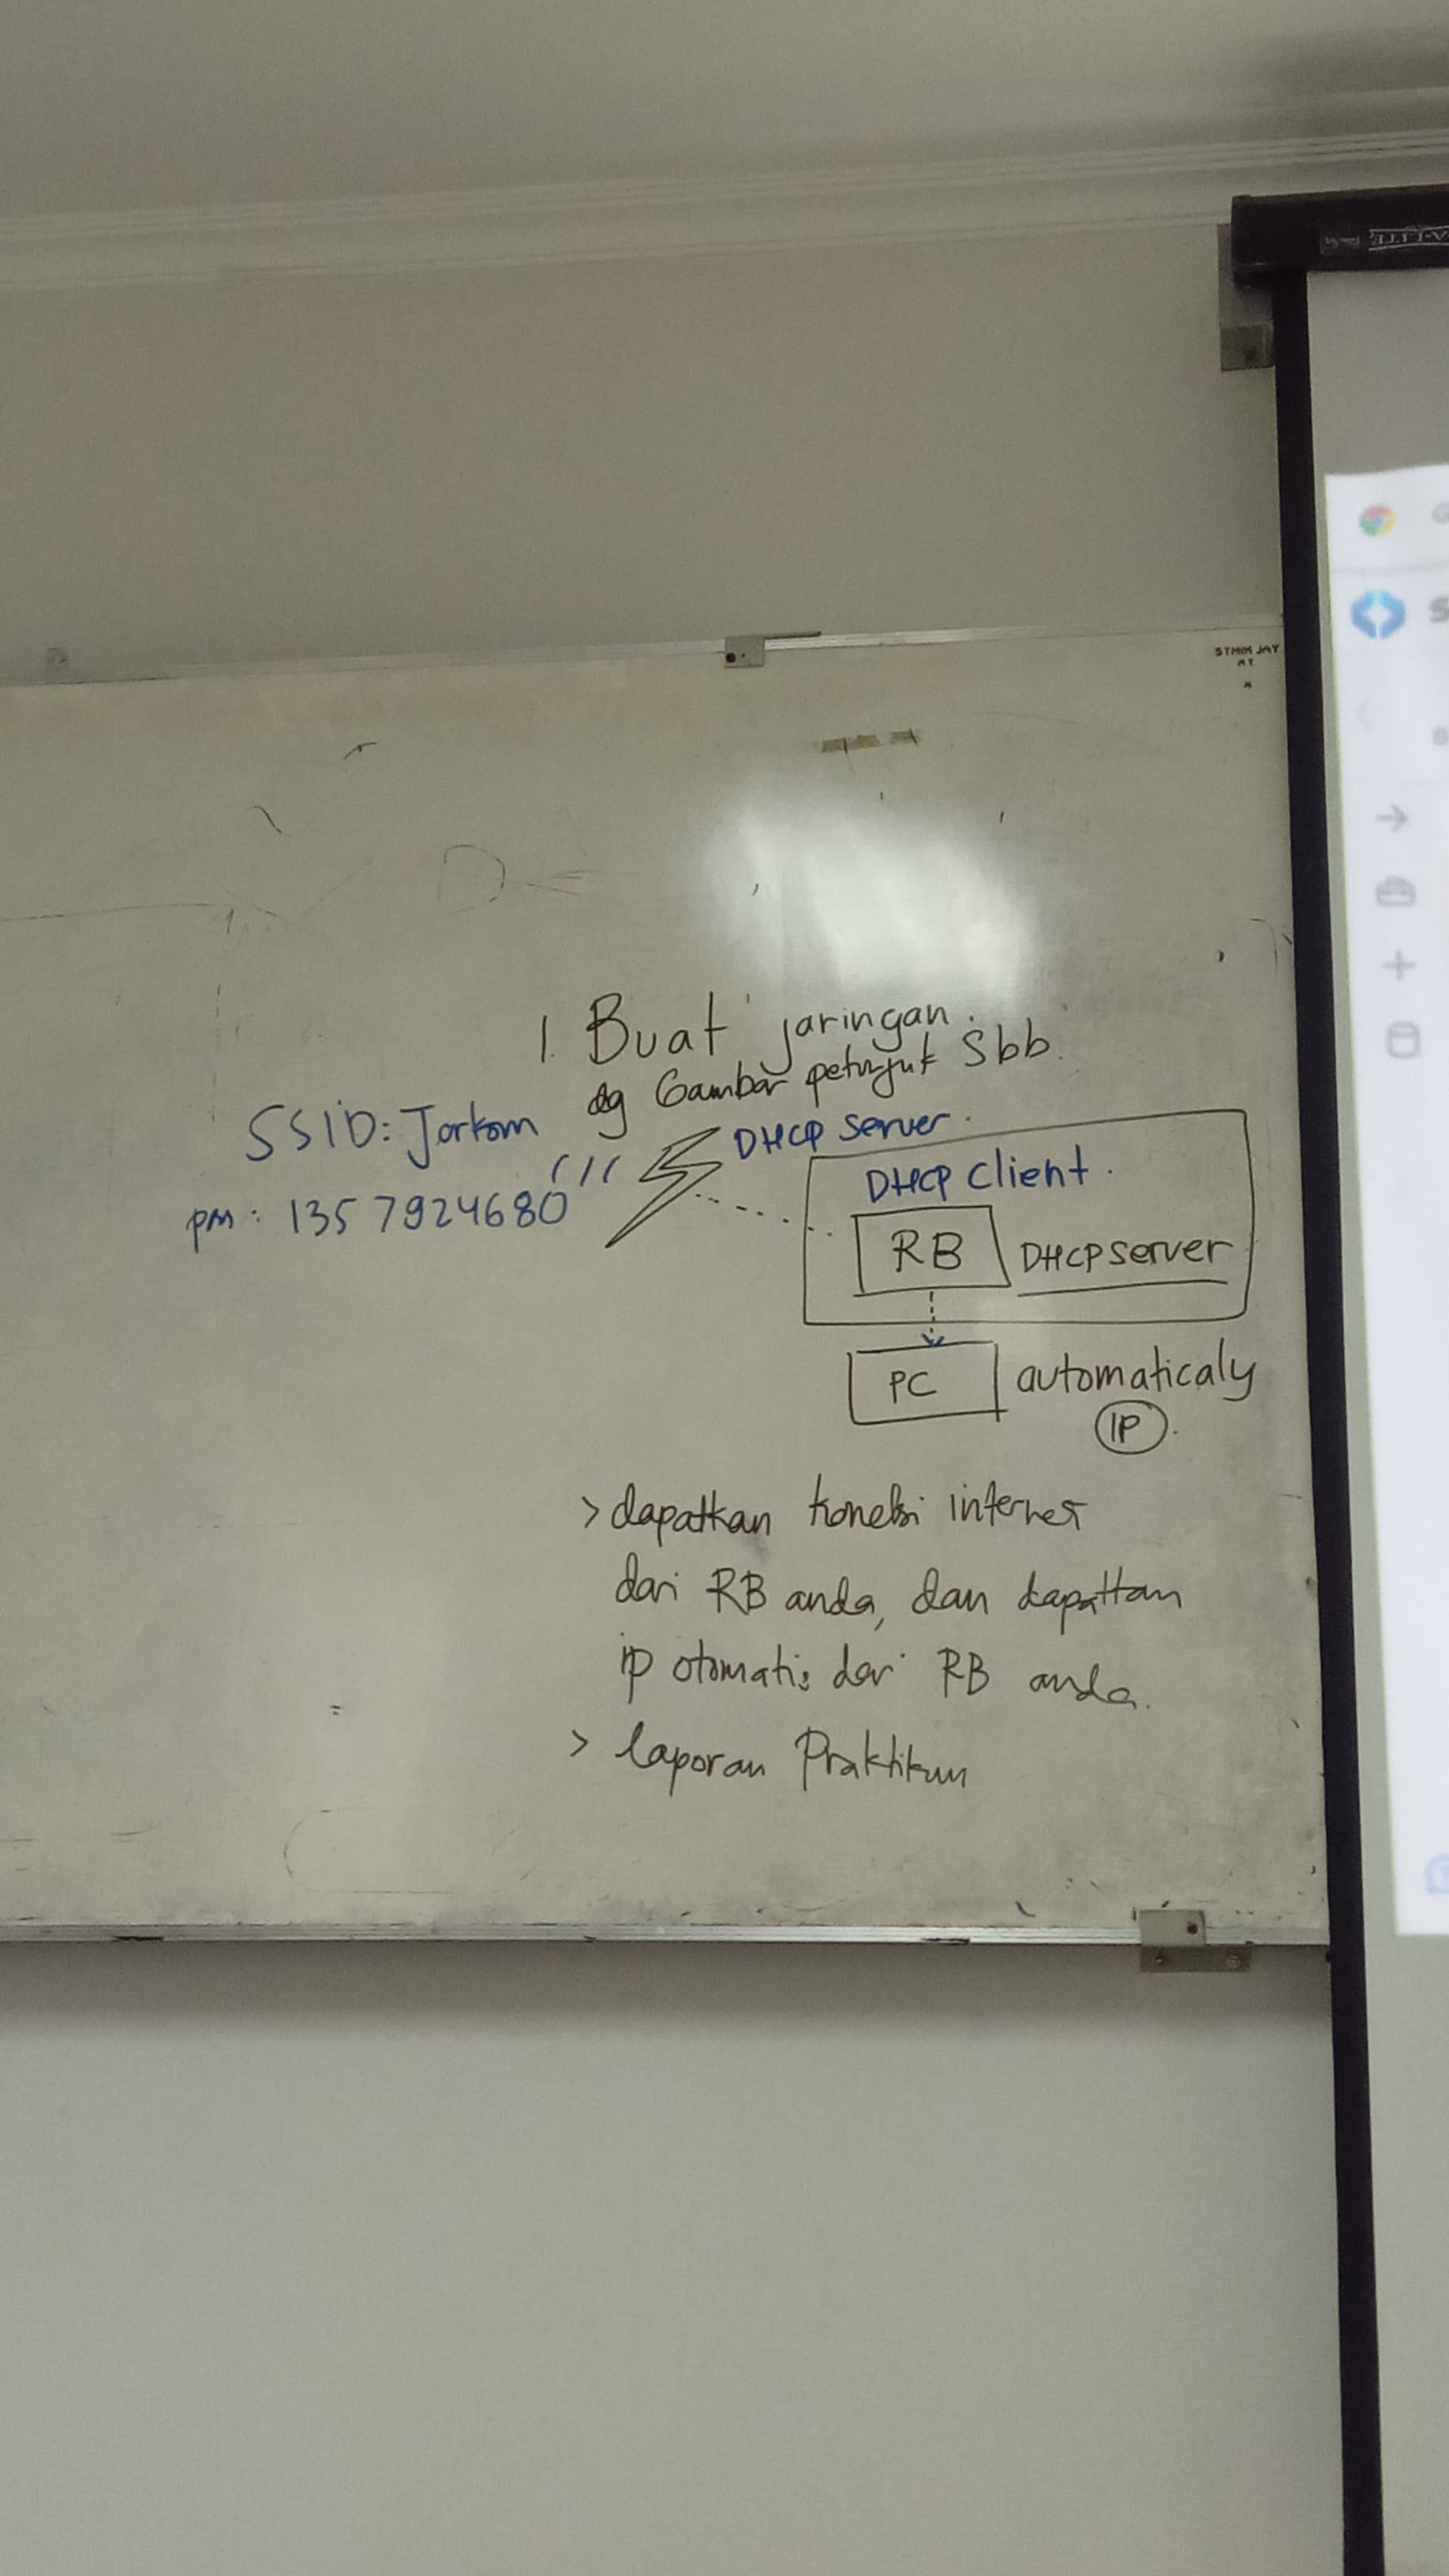 STMIK JAY
1. Buat jaringan.
dg Gambar petunjuk Sbb.
SSID: Jarkom
DHCP Server.
pm: 1357924680
DHCP Client.
RB
DHCP server
PC
automaticaly
IP.
> dapatkan koneksi internet
dari RB anda, dan dapatkan
ip otomatis dari RB anda.
> laporan Praktikum